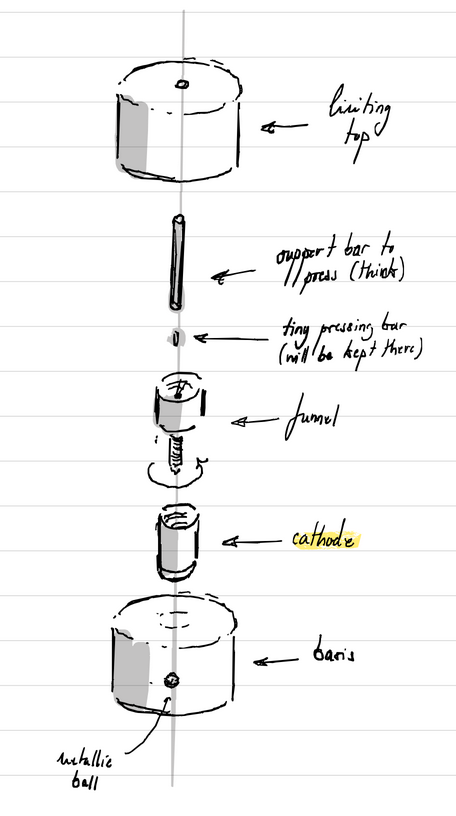 limiting
top
support bar to
press (think)
tiny pressing bar
(will be kept there)
funnel
cathode
basis
metallic
ball